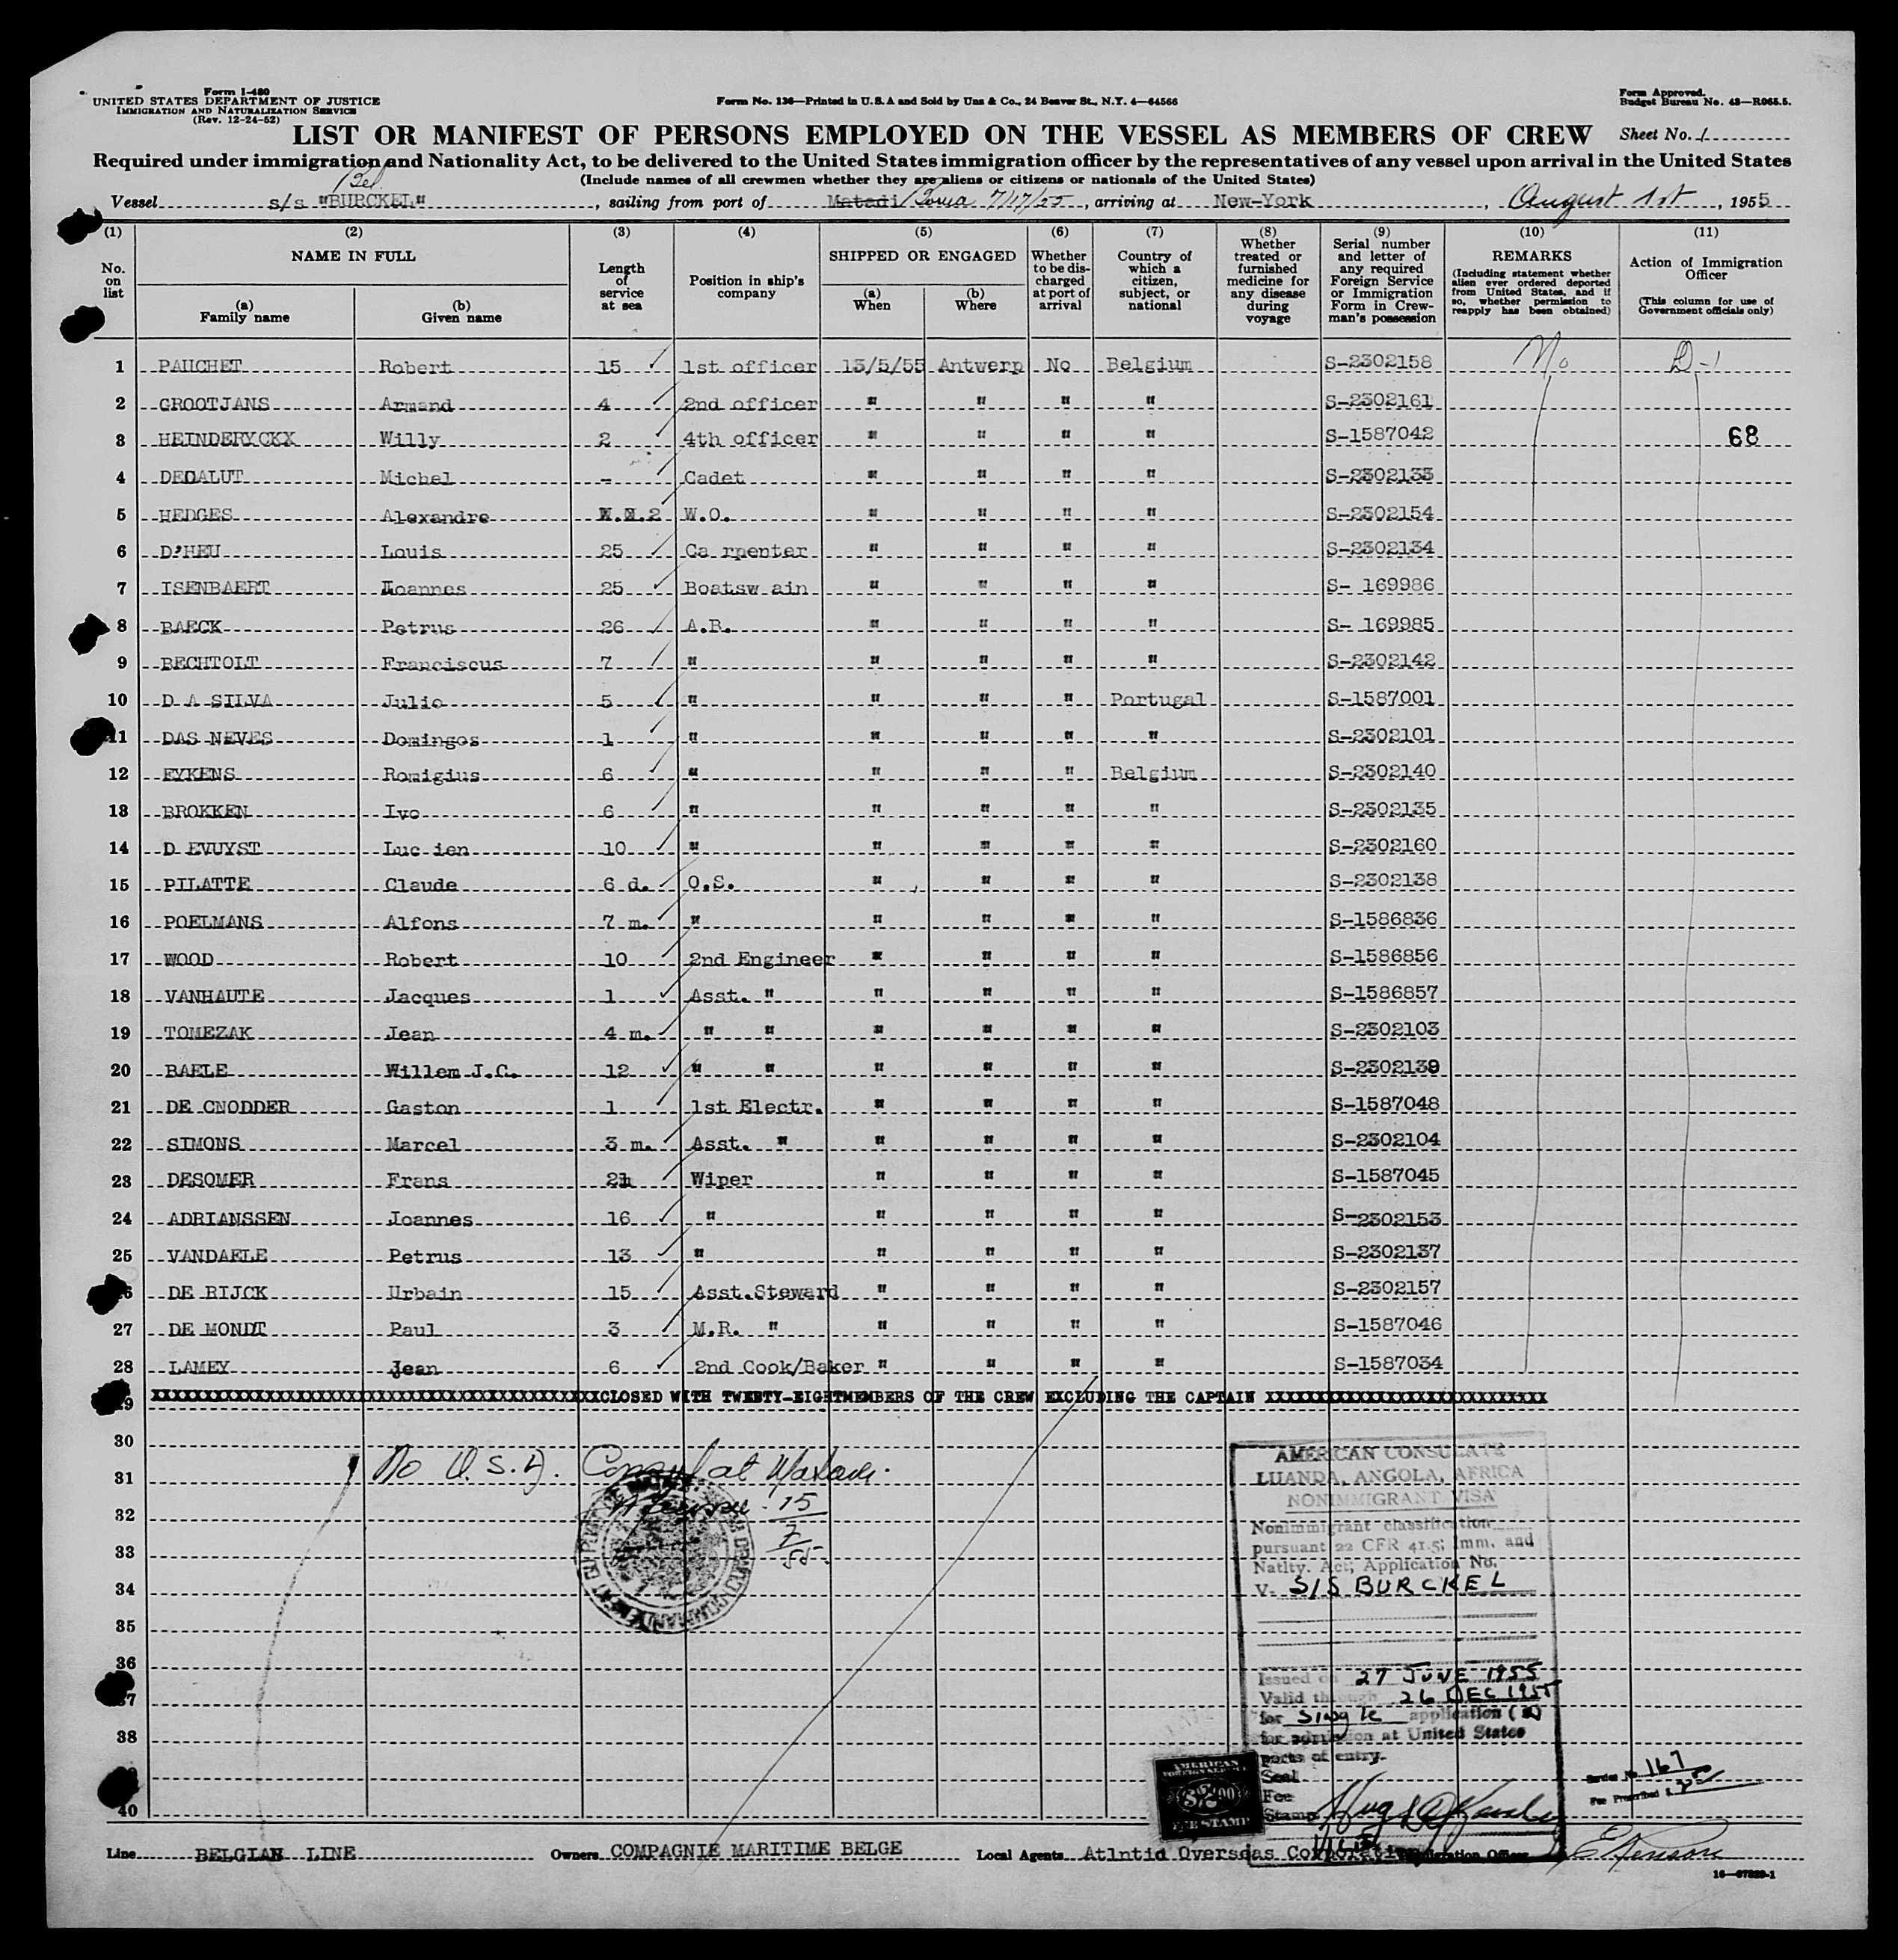 Form I-480
UNITED STATES DEPARTMENT OF JUSTICE
IMMIGRATION AND NATURALIZATION SERVICE
(Rev. 12-24-52)
Form No. 136—Printed in U.S.A and Sold by Unz & Co., 24 Beaver St., N.Y. 4—64566
Form Approved.
Budget Bureau No. 43—R065.5.
LIST OR MANIFEST OF PERSONS EMPLOYED ON THE VESSEL AS MEMBERS OF CREW
Sheet No. 1
Required under immigration and Nationality Act, to be delivered to the United States immigration officer by the representatives of any vessel upon arrival in the United States
(Include names of all crewmen whether they are aliens or citizens or nationals of the United States)
Bel.
Vessel s/s "BURCKEL", sailing from port of Matadi Boma 7/17/55, arriving at New-York, August 1st, 1955
(1) (2) (3) (4) (5) (6) (7) (8) (9) (10) (11)
No. on list
NAME IN FULL
(a) Family name
(b) Given name
Length of service at sea
Position in ship's company
SHIPPED OR ENGAGED
(a) When
(b) Where
Whether to be discharged at port of arrival
Country of which a citizen, subject, or national
Whether treated or furnished medicine for any disease during voyage
Serial number and letter of any required Foreign Service or Immigration Form in Crewman's possession
REMARKS
(Including statement whether alien ever ordered deported from United States, and if so, whether permission to reapply has been obtained)
Action of Immigration Officer
(This column for use of Government officials only)
1 PAUCHET Robert 15 1st officer 13/5/55 Antwerp No Belgium S-2302158 No D-1
2 GROOTJANS Armand 4 2nd officer " " " " S-2302161
3 HEINDERYCKX Willy 2 4th officer " " " " S-1587042 68
4 DECALUT Michel - Cadet " " " " S-2302133
5 HEDGES Alexandre 2 W.O. " " " " S-2302154
6 D'HEU Louis 25 Ca rpenter " " " " S-2302134
7 ISENBAERT Ioannes 25 Boatsw ain " " " " S- 169986
8 BAECK Petrus 26 A.B. " " " " S- 169985
9 BECHTOLT Franciscus 7 " " " " " S-2302142
10 D A SILVA Julio 5 " " " " Portugal S-1587001
11 DAS NEVES Domingos 1 " " " " " S-2302101
12 EYKENS Romigius 6 " " " " Belgium S-2302140
13 BROKKEN Ivo 6 " " " " " S-2302135
14 D EVUYST Luc ien 10 " " " " " S-2302160
15 PILATTE Claude 6 d. O.S. " " " " S-2302138
16 POELMANS Alfons 7 m. " " " " " S-1586836
17 WOOD Robert 10 2nd Engineer " " " " S-1586856
18 VANHAUTE Jacques 1 Asst. " " " " " S-1586857
19 TOMEZAK Jean 4 m. " " " " " " S-2302103
20 BAELE Willem J.C. 12 " " " " " " S-2302139
21 DE CNODDER Gaston 1 1st Electr. " " " " S-1587048
22 SIMONS Marcel 3 m. Asst. " " " " " S-2302104
23 DESOMER Frans 21 Wiper " " " " S-1587045
24 ADRIANSSEN Joannes 16 " " " " " S-2302153
25 VANDAELE Petrus 13 " " " " " S-2302137
26 DE RIJCK Urbain 15 Asst.Steward " " " " S-2302157
27 DE MONDT Paul 3 M.R. " " " " " S-1587046
28 LAMEY Jean 6 2nd Cook/Baker " " " " S-1587034
29 XXXXXXXXXXXXXXXXXXXXXXXXXXXXXXXXXXXXXXXXXXCLOSED WITH TWENTY-EIGHTMEMBERS OF THE CREW EXCLUDING THE CAPTAIN XXXXXXXXXXXXXXXXXXXXXXXXXX
30
31 No U.S.A. Consul at Matadi.
32 15
33 7
55.
34
35
36
37
38
39
40
AMERICAN CONSULATE
LUANDA, ANGOLA, AFRICA
NONIMMIGRANT VISA
Nonimmigrant classification
pursuant 22 CFR 41.5; Imm. and
Natlty. Act; Application No.
V- S/S BURCKEL
Issued on 27 JUNE 1955
Valid through 26 DEC 1955
for single application (s)
for admission at United States
ports of entry.
Seal
Fee
Stamp
AMERICAN
FOREIGN SERVICE
FEE STAMP
Service No 167
Fee Prescribed
Line BELGIAN LINE Owners COMPAGNIE MARITIME BELGE Local Agents Atlntid Overseas Corporation Immigration Officer
16—67829-1